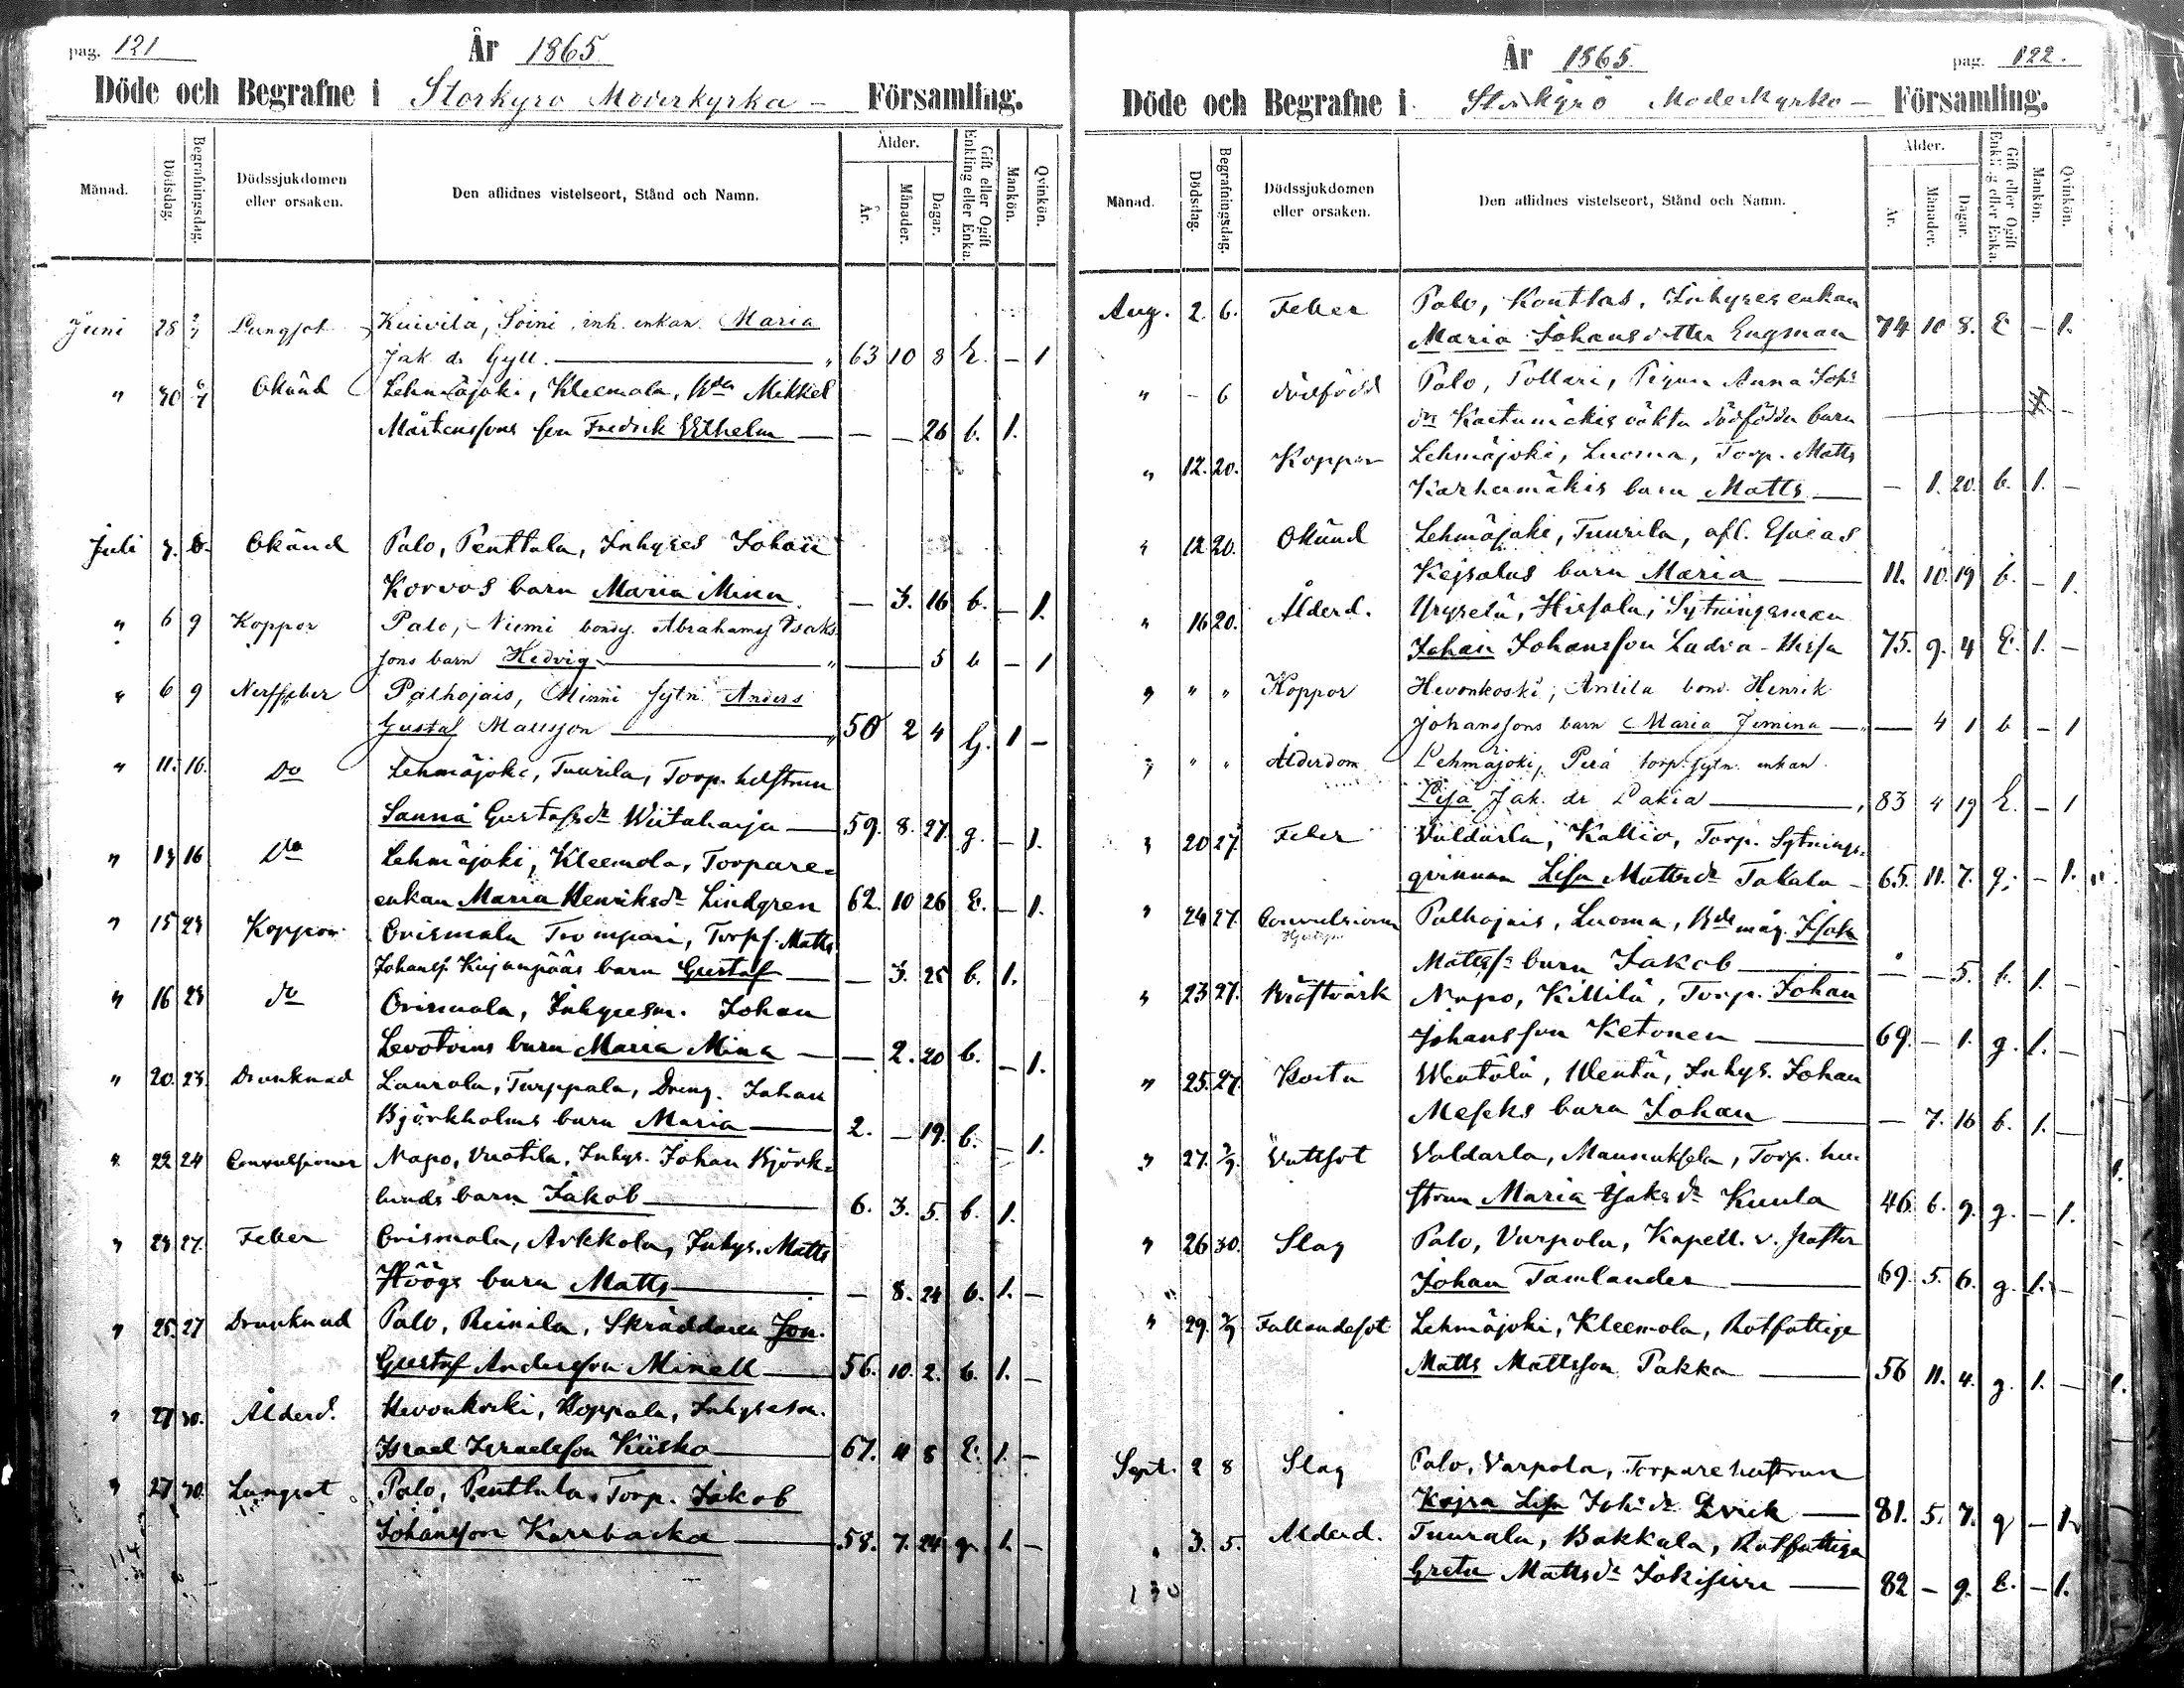 pag. 121
År 1865
Döde och Begrafne i Storkyro Moderkyrka — Församling.
Månad.
Dödsdag.
Begrafningsdag.
Dödssjukdomen eller orsaken.
Den aflidnes vistelseort, Stånd och Namn.
Ålder.
År.
Månader.
Dagar.
Gift eller Ogift Enkling eller Enka.
Mankön.
Qvinkön.
Juni 28 2/7 Lungsot Kuivila, Soini inh. enkan Maria
Jak. dr Gyll. — 63 10 8 E. — 1
" 30 6/7 Okänd Lehmäjoki, Kleemola, Mikkel
Mårtenssons son Fredrik Wilhelm — — — 26 b. 1.
Juli Okänd Palo, Penttala, Inhyses Johan
Korvos barn Maria Mina — 3. 16 b. — 1.
" 6 9 Koppor Palo, Niemi bondes. Abrahams Isaks
sons barn Hedvig — 5 b — 1
" 6 9 Nerffeber Palhojais, Minni sytn. Anders
Gustaf Mattsson — 50 2 4 G. 1 —
" 11. 16. Do Lehmäjoki, Tuurila, Torp. hustrun
Sanna Gustafsdr Wiitaharja — 59. 8. 27. g. — 1.
" 13 16 Do Lehmäjoki, Kleemola, Torpare-
enkan Maria Henriksdr Lindgren 62. 10 26 E. — 1.
" 15 23 Koppor Orismala Trompari, Torps. Matts
Johans. Kujanpääs barn Gustaf — — 3. 25 b. 1.
" 16 23 do Orismala, Inhysesm. Johan
barn Maria Mina — — 2. 20 b. — 1.
" 20. 23. Drunknad Laurola, Turppala, Dreng. Johan
Björkholms barn Maria — 2. — 19. b. — 1.
" 22 24 Convulsioner Napo, Uratila, Inhys. Johan Björk-
lunds barn Jakob — 6. 3. 5. b. 1.
" 23 27. Feber Orismala, Arkkola, Inhys. Matts
Höögs barn Matts — — 8. 24 b. 1. —
" 25. 27 Drunknad Palo, Reinila, Skräddaren Jon.
Gustaf Andersson Minell — 56. 10. 2. b. 1. —
" 27 30. Ålderd. Hevonkoski, Koppala, Inhysesm.
Israel Israelsson Kiisko — 67. 11 8 E. 1. —
" 27 30. Lungsot Palo, Penttala, Torp. Jakob
Johansson Karrbacka — 58. 7. 24 g. 1. —
114
År 1865.
pag. 122.
Döde och Begrafne i Storkyro Moderkyrko — Församling.
Månad.
Dödsdag.
Begrafningsdag.
Dödssjukdomen eller orsaken.
Den aflidnes vistelseort, Stånd och Namn.
Ålder.
År.
Månader.
Dagar.
Gift eller Ogift Enkling eller Enka.
Mankön.
Qvinkön.
Aug. 2. 6. Feber Palo, Konttas, Inhyses enkan
Maria Johansdotter Engman 74 10 8. E — 1.
" — 6 dödfödd Palo, Pollari, Pigan Anna Johs
dr Kaetumäkis oäkta dödfödda barn — —
" 12. 20. Koppor Lehmäjoki, Luoma, Torp. Matts
Karhumäkis barn Matts — — 1. 20. b. 1. —
" 12 20. Okänd Lehmäjoki, Tuurila, afl. Esaias
Kejsalas barn Maria — 11. 10. 19 b. — 1.
" 16 20. Ålderd. Yryselä, Hissala, Sytningsman
Johan Johansson Ladra-Hissa 75. 9. 4 E. 1. —
" " " Koppor Hevonkoski, Antila bond. Henrik
Johanssons barn Maria Jemina — — 4 1 b — 1
" " " Ålderdom Lehmäjoki, Perä torp. sytn. enkan
Lisa Jak. dr Lakia — 83 4 19 E. — 1
" 20 27. Feber Valdarla, Kallio, Torp. Sytnings-
qvinnan Lisa Mattsdr Takala — 65. 11. 7. g. — 1.
" 24 27. Convulsioner Palhojais, Luoma, Bds måg. Isak
Mattss barn Jakob — — — 5. b. 1. —
" 23 27. Bröstvärk Napo, Killilä, Torp. Johan
Johansson Ketonen — 69. — 1. g. 1. —
" 25. 27. Hosta Wentälä, Wentä, Inhys. Johan
barn Johan — — 7. 16 b. 1. —
" 27. 3/9 Vattsot Valdarla, Maunuksela, Torp. hu-
strun Maria Isaksdr Kuula 46. 6. 9. g. — 1.
" 26 30. Slag Palo, Varpola, Kapell. v. Pastor
Johan Tamlander — 69. 5. 6. g. 1. —
" 29. 3/9 Fallandesot Lehmäjoki, Kleemola, Rotfattige
Matts Mattsson Pakka — 56 11. 4. g. 1. —
Sept. 2 8 Slag Palo, Varpola, Torparehustrun
Kajsa Lisa Johsdr — 81. 5. 7. g — 1.
" 3. 5. Ålderd. Tuurala, Bakkala, Rotfattiga
Greta Mattsdr — 82 — 9. E. — 1.
130